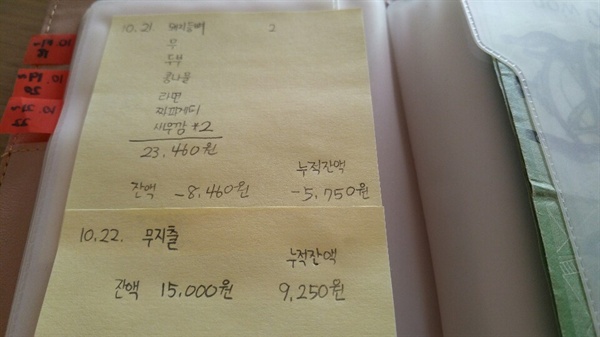 10.21 돼지등뼈 2
무
두부
콩나물
라면
짜파게티
새우깡 *2
23.460원
누적잔액
잔액 -8.460원 -5.750원
10.22. 무지출
누적잔액
잔액 15.000원 9.250원